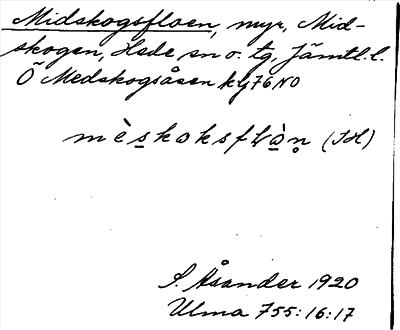 Midskogsfloen, myr, Mid-
skogen, Hede sn o. tg, Jämtl. l.
Ö Medskogsåsen kbl 76 NO
mèskoksflòn (JH)
S. Åsander 1920
Ulma 755:16:17